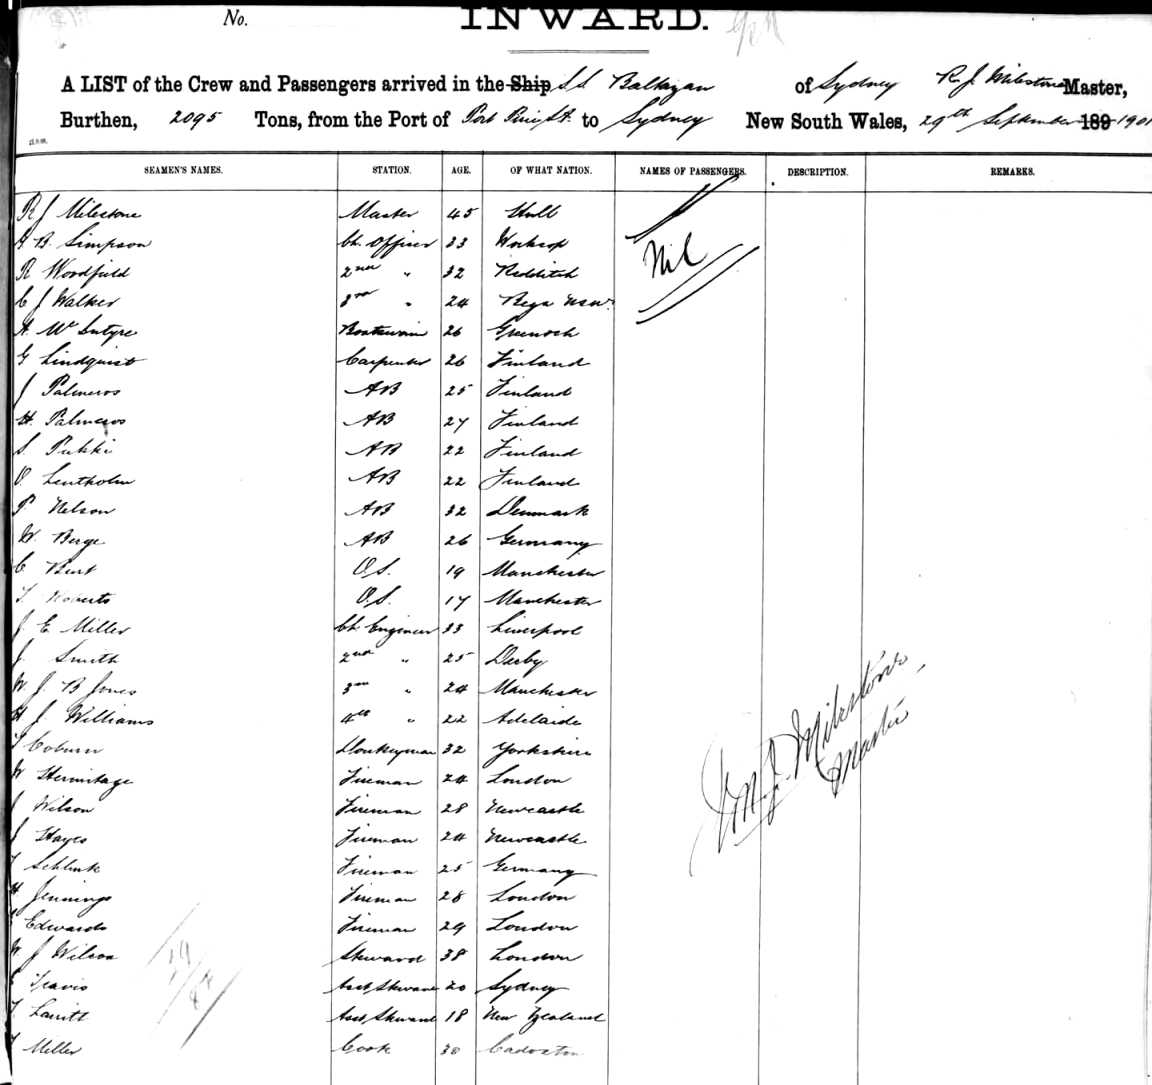 No. INWARD.
A LIST of the Crew and Passengers arrived in the Ship S.S. of Sydney R. J. Milestone Master,
Burthen, 2095 Tons, from the Port of Port Pirie to Sydney New South Wales, 29th September 189 1901
SEAMEN'S NAMES. STATION. AGE. OF WHAT NATION. NAMES OF PASSENGERS. DESCRIPTION. REMARKS.
R J Milestone Master 45 Hull
B. Simpson Ch. Officer 33 Worksop Nil
R Woodfield 2nd " 32 Redditch
C J Walker 3rd " 24 Bega NSW.
A. McIntyre Boatswain 26 Greenock
G Lindquist Carpenter 26 Finland
J Palmeros AB 25 Finland
H. Palmeros AB 27 Finland
S. Pukki AB 22 Finland
O. Lentholm AB 22 Finland
P Nelson AB 32 Denmark
W. Berge AB 26 Germany
C Bent O.S. 19 Manchester
T Roberts O.S. 17 Manchester
J. E. Miller Ch. Engineer 33 Liverpool
J. Smith 2nd " 25 Derby
W. J. B Jones 3rd " 24 Manchester
H J. Williams 4th " 22 Adelaide
T Coburn Donkeyman 32 Yorkshire
W Hermitage Fireman 24 London
J Wilson Fireman 28 Newcastle
J Hayes Fireman 24 Newcastle
Schlink Fireman 25 Germany
H Jennings Fireman 28 London
Edwards Fireman 29 London
W J Wilson Steward 38 London
Travis Asst Steward 20 Sydney
Asst Steward 18 New Zealand
Miller Cook 30
J. Milestone,
Master